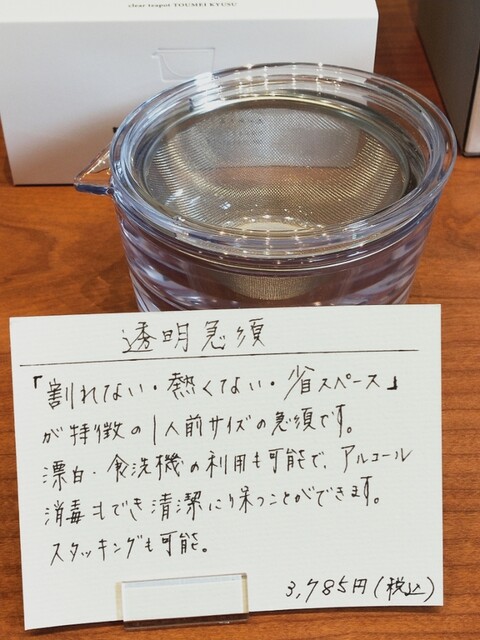 clear teapot TOUMEI KYUSU
透明急須
「割れない・熱くない・省スペース」
が特徴の1人前サイズの急須です。
漂白・食洗機の利用も可能で、アルコール
消毒もでき清潔に保つことができます。
スタッキングも可能。
3,785円(税込)